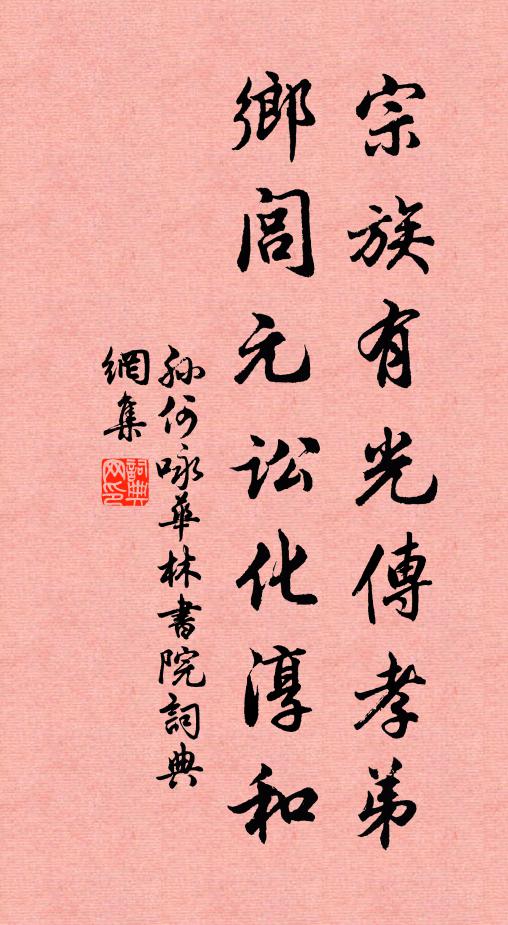 宗族有光傳孝弟
鄉閭元訟化淳和
孫何咏華林書院詞典
網集
詞典
网印